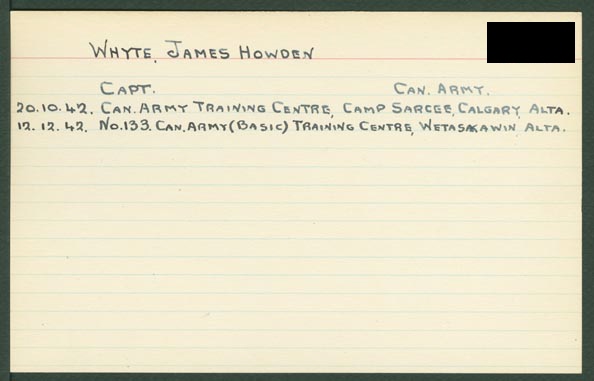 WHYTE, JAMES HOWDEN
CAPT. CAN. ARMY.
20.10.42. CAN. ARMY TRAINING CENTRE, CAMP SARCEE, CALGARY, ALTA.
12.12.42. No.133. CAN. ARMY (BASIC) TRAINING CENTRE, WETASKAWIN, ALTA.